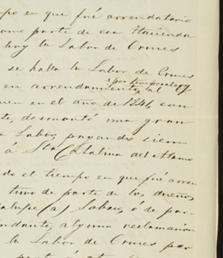 po en que fué arrendatario
mo parte de esa Hacienda
hoy la Labor de Cruces
se halla la Labor de Cruces
en arrendamiento, al
en el año de 1846 con
desmontó una gran
Labor, pagando siem
á Sta Catalina del Alamo
do el tiempo en que fué arren
timo de parte de los dueños
ó de par
alguna reclamacion
la Labor de Cruces por